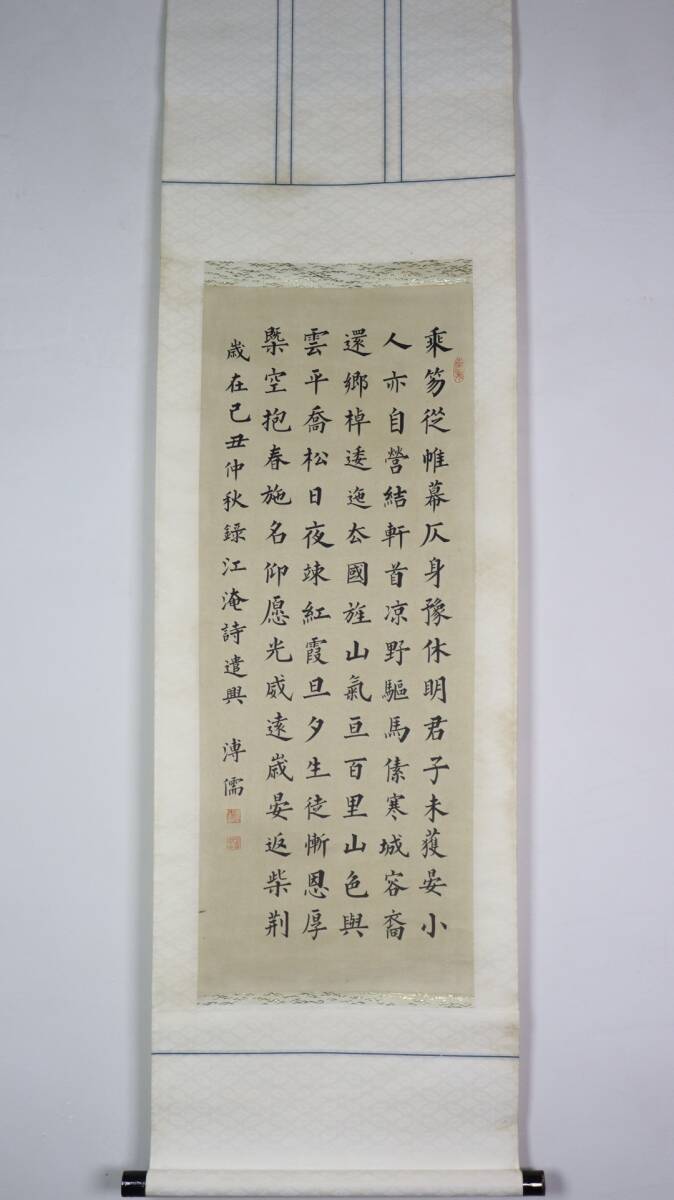 乘笏從帷幕仄身豫休明君子未獲晏小
人亦自營結軒首凉野驅馬傃寒城容裔
還鄉棹逶迤去國旌山氣亘百里山色與
雲平喬松日夜竦紅霞旦夕生徒慚恩厚
槩空抱春施名仰愿光威遠歲晏返柴荆
歲在己丑仲秋錄江淹詩遣興 溥儒